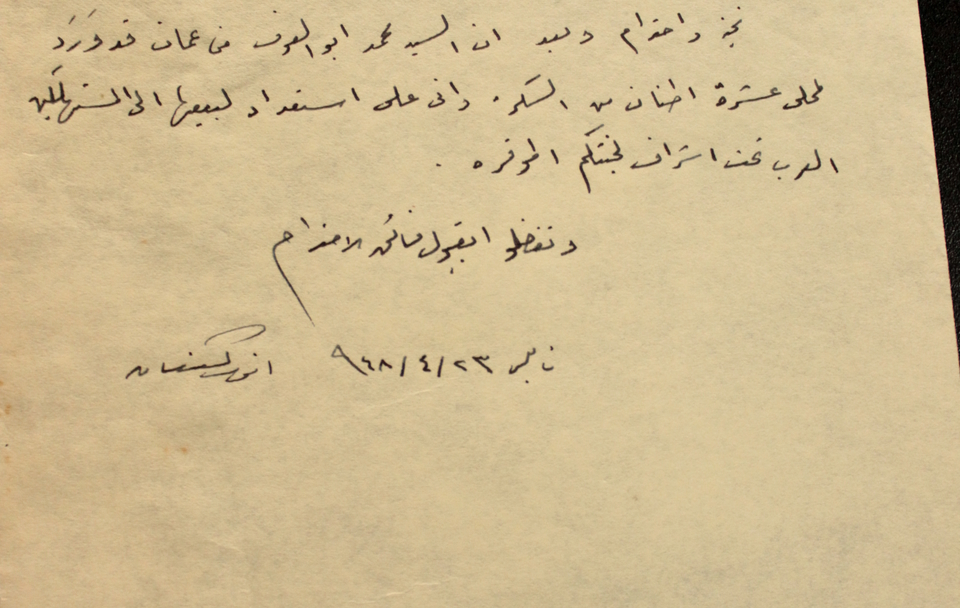 تحية واحترام وبعد ان السيد محمد ابو العوف من عمان قد ورد
لمحلي عشرة اطنان من السكر. واني على استعداد لبيعها الى المستهلكين
العرب تحت اشراف لجنتكم الموقره .
وتفضلوا بقبول فائق الاحترام
نابلس ٢٣/٤/٩٦٨